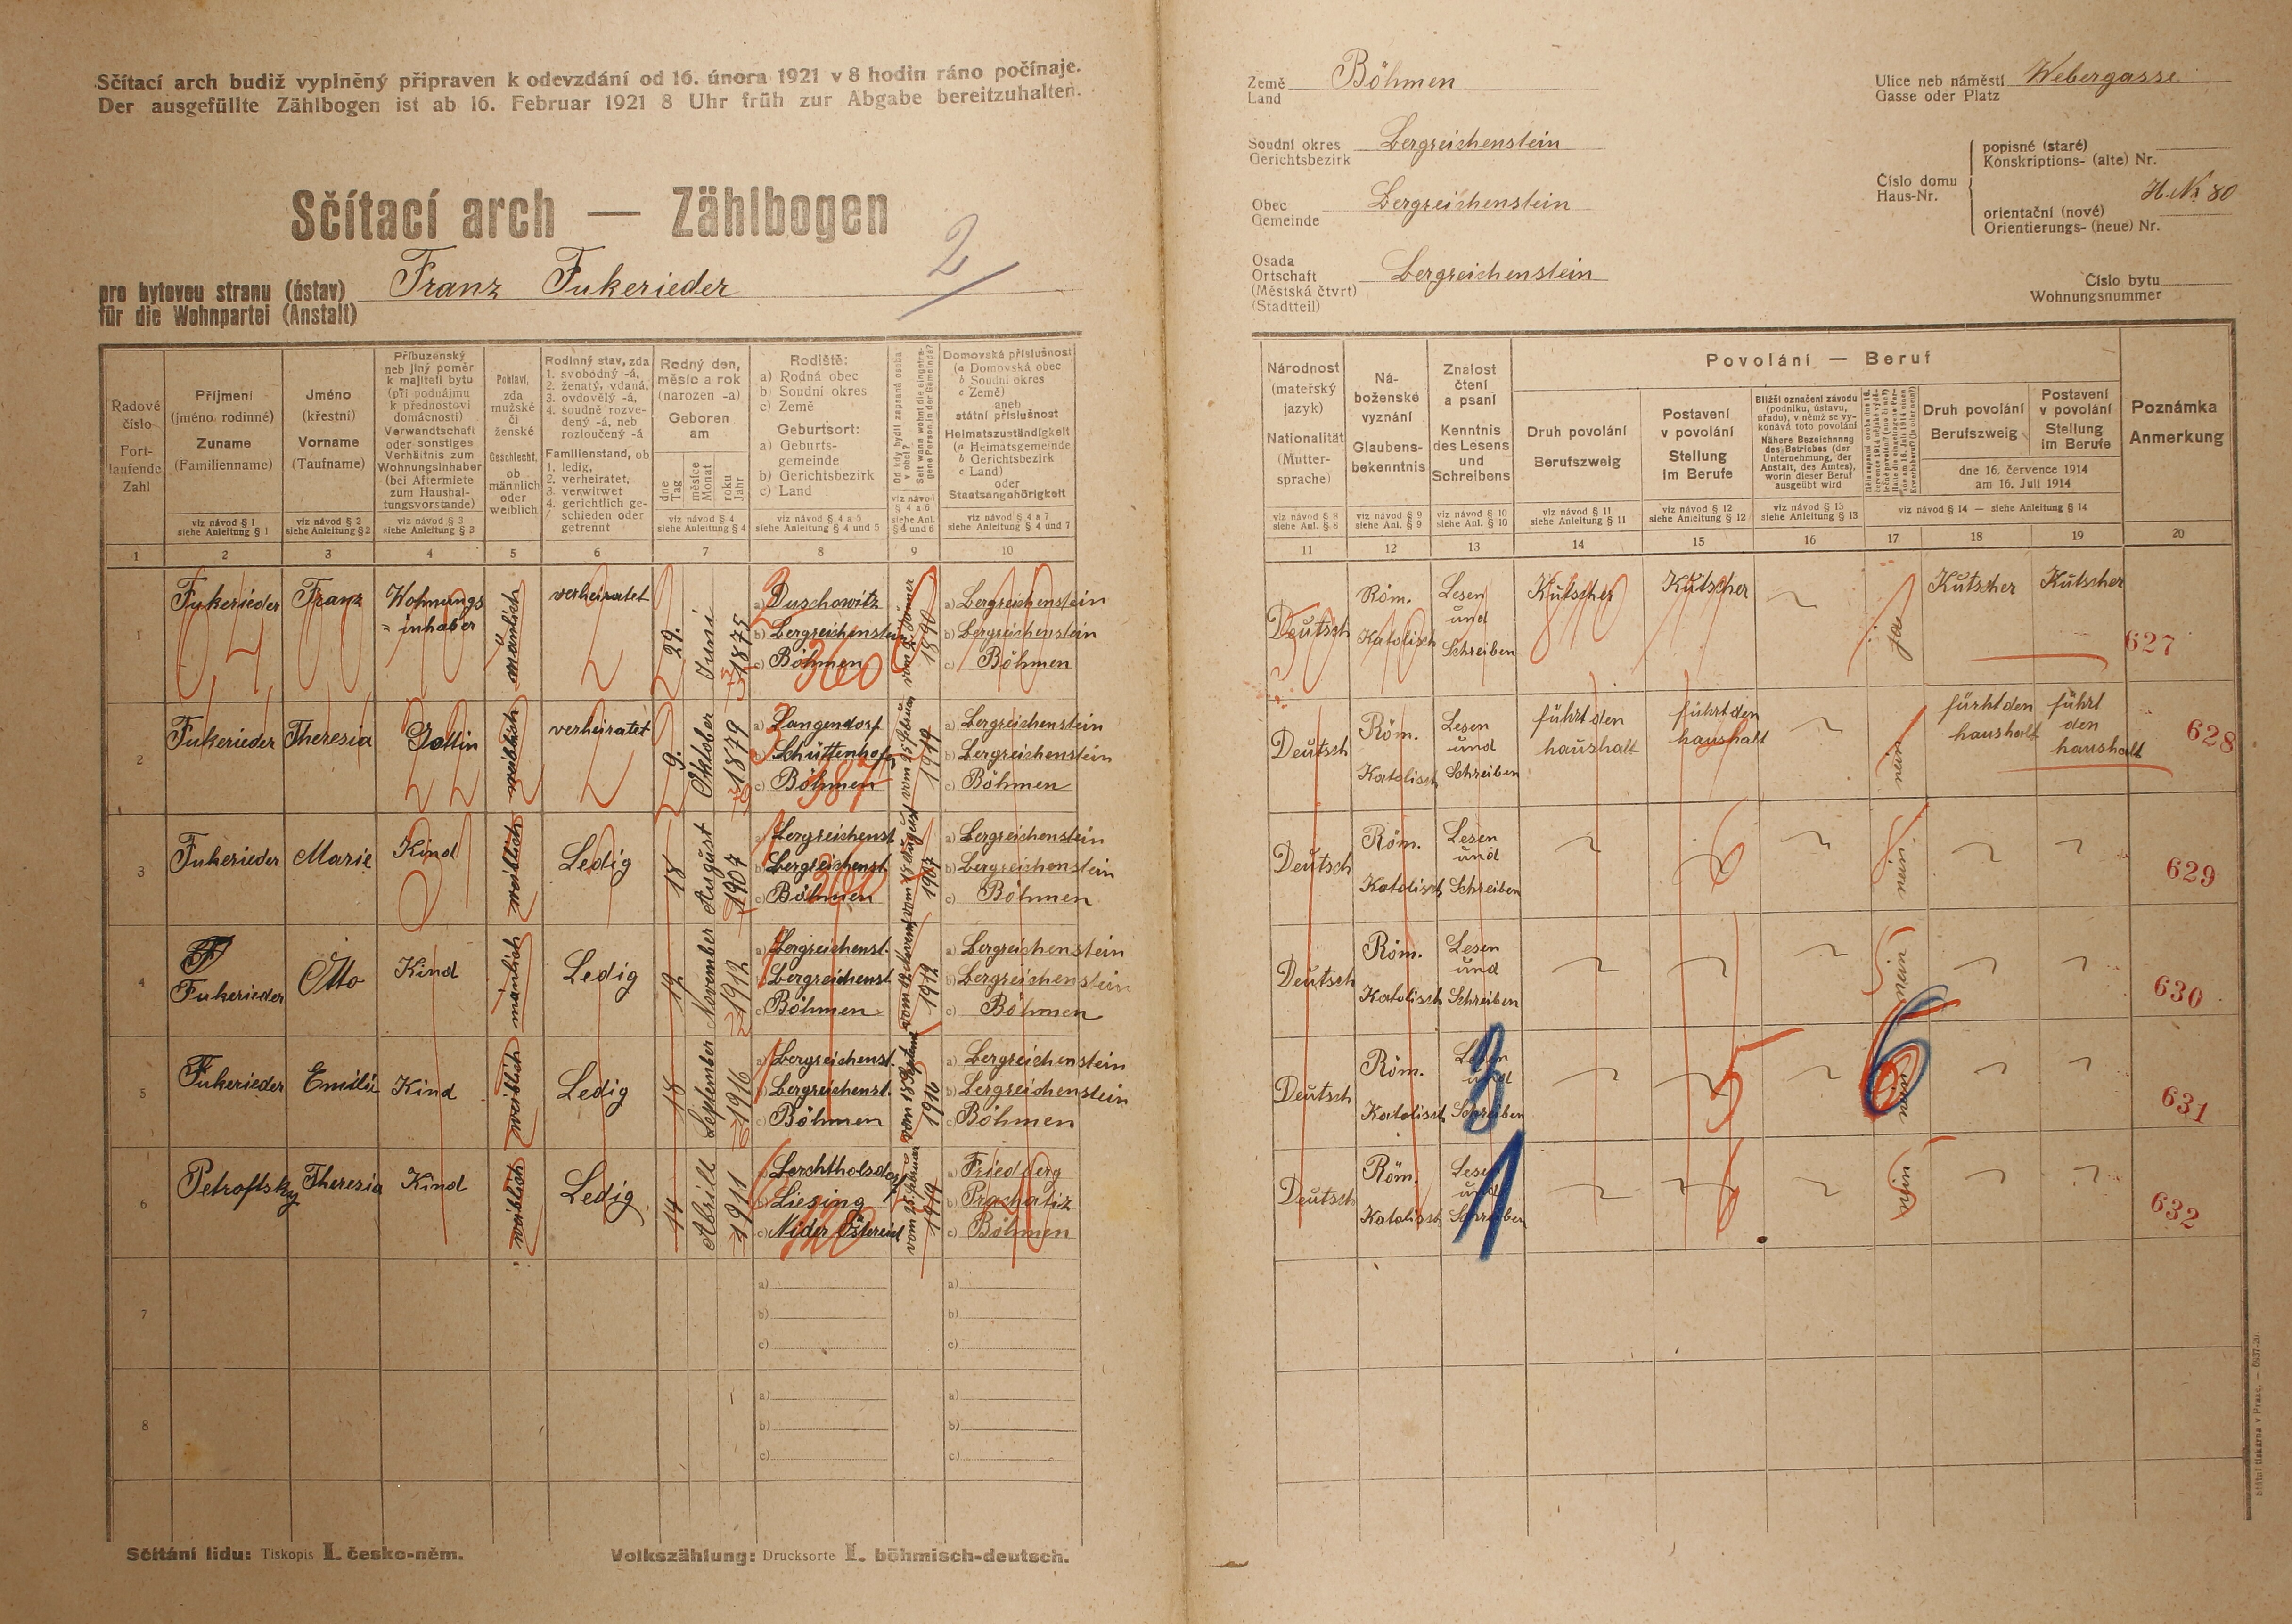 Sčítací arch budiž vyplněný připraven k odevzdání od 16. února 1921 v 8 hodin ráno počínaje.
Der ausgefüllte Zählbogen ist ab 16. Februar 1921 8 Uhr früh zur Abgabe bereitzuhalten.
Sčítací arch — Zählbogen
2
pro bytovou stranu (ústav)
für die Wohnpartei (Anstalt)
Franz Fukerieder
Země
Land
Böhmen
Soudní okres
Gerichtsbezirk
Bergreichenstein
Obec
Gemeinde
Bergreichenstein
Osada
Ortschaft
(Městská čtvrt)
(Stadtteil)
Bergreichenstein
Ulice neb náměstí
Gasse oder Platz
Webergasse
Číslo domu
Haus-Nr.
popisné (staré)
Konskriptions- (alte) Nr.
H. Nr 80
orientační (nové)
Orientierungs- (neue) Nr.
Číslo bytu
Wohnungsnummer
Řadové
číslo
Fort-
laufende
Zahl
Příjmení
(jméno rodinné)
Zuname
(Familienname)
viz návod § 1
siehe Anleitung § 1
Jméno
(křestní)
Vorname
(Taufname)
viz návod § 2
siehe Anleitung § 2
Příbuzenský
neb jiný poměr
k majiteli bytu
(při podnájmu
k přednostovi
domácnosti)
Verwandtschaft
oder sonstiges
Verhältnis zum
Wohnungsinhaber
(bei Aftermiete
zum Haushal-
tungsvorstande)
viz návod § 3
siehe Anleitung § 3
Pohlaví,
zda
mužské
či
ženské
Geschlecht,
ob
männlich
oder
weiblich
Rodinný stav, zda
1. svobodný -á,
2. ženatý, vdaná,
3. ovdovělý -á,
4. soudně rozve-
dený -á, neb
rozloučený -á
Familienstand, ob
1. ledig,
2. verheiratet,
3. verwitwet
4. gerichtlich ge-
schieden oder
getrennt
Rodný den,
měsíc a rok
(narozen -a)
Geboren
am
dne
Tag
měsíce
Monat
roku
Jahr
viz návod § 4
siehe Anleitung § 4
Rodiště:
a) Rodná obec
b) Soudní okres
c) Země
Geburtsort:
a) Geburts-
gemeinde
b) Gerichtsbezirk
c) Land
viz návod § 4 a 5
siehe Anleitung § 4 und 5
Od kdy bydlí zapsaná osoba
v obci?
Seit wann wohnt die eingetra-
gene Person in der Gemeinde?
viz návod
§ 4 a 6
siehe Anl.
§ 4 und 6
Domovská příslušnost
(a Domovská obec
b Soudní okres
c Země)
aneb
státní příslušnost
Heimatszuständigkeit
(a Heimatsgemeinde
b Gerichtsbezirk
c Land)
oder
Staatsangehörigkeit
viz návod § 4 a 7
siehe Anleitung § 4 und 7
Národnost
(mateřský
jazyk)
Nationalität
(Mutter-
sprache)
viz návod § 8
siehe Anl. § 8
Ná-
boženské
vyznání
Glaubens-
bekenntnis
viz návod § 9
siehe Anl. § 9
Znalost
čtení
a psaní
Kenntnis
des Lesens
und
Schreibens
viz návod § 10
siehe Anl. § 10
Povolání — Beruf
Druh povolání
Berufszweig
viz návod § 11
siehe Anleitung § 11
Postavení
v povolání
Stellung
im Berufe
viz návod § 12
siehe Anleitung § 12
Bližší označení závodu
(podniku, ústavu,
úřadu), v němž se vy-
konává toto povolání
Nähere Bezeichnung
des Betriebes (der
Unternehmung, der
Anstalt, des Amtes),
worin dieser Beruf
ausgeübt wird
viz návod § 13
siehe Anleitung § 13
Druh povolání
Berufszweig
Postavení
v povolání
Stellung
im Berufe
dne 16. července 1914
am 16. Juli 1914
viz návod § 14 — siehe Anleitung § 14
Poznámka
Anmerkung
1 2 3 4 5 6 7 8 9 10
11 12 13 14 15 16 17 18 19 20
1
Fukerieder
Franz
Wohnungs
= inhaber
mänlich
verheiratet
29.
Juni
1875
a) Duschowitz
b) Bergreichenstein
c) Böhmen
360
1890
a) Bergreichenstein
b) Bergreichenstein
c) Böhmen
Deutsch
Röm.
Katolisch
Lesen
und
Schreiben
Kutscher
Kutscher
ja
Kutscher
Kutscher
627
2
Fukerieder
Theresia
Gattin
weiblich
verheiratet
9.
Oktober
1879
a) Langendorf
b) Schüttenhofen
c) Böhmen
387
vom 25 februar
1919
a) Bergreichenstein
b) Bergreichenstein
c) Böhmen
Deutsch
Röm.
Katolisch
Lesen
und
Schreiben
führt den
haushalt
führt den
haushalt
nein
fürht den
haushalt
führt
den
haushalt
628
3
Fukerieder
Marie
Kind
weiblich
Ledig
18
August
1907
a) Bergreichenst.
b) Bergreichenst.
c) Böhmen
360
vom 18 August
1907
a) Bergreichenstein
b) Bergreichenstein
c) Böhmen
Deutsch
Röm.
Katolisch
Lesen
und
Schreiben
nein
629
4
Fukerieder
Otto
Kind
mänlich
Ledig
12
November
1912
a) Bergreichenst.
b) Bergreichenst.
c) Böhmen
1912
a) Bergreichenstein
b) Bergreichenstein
c) Böhmen
Deutsch
Röm.
Katolisch
Lesen
und
Schreiben
nein
630
5
Fukerieder
Emilie
Kind
weiblich
Ledig
18
September
1916
a) Bergreichenst.
b) Bergreichenst.
c) Böhmen
1916
a) Bergreichenstein
b) Bergreichenstein
c) Böhmen
Deutsch
Röm.
Katolisch
Lesen
und
Schreiben
3
5
6
nein
631
6
Petroftsky
Theresia
Kind
weiblich
Ledig
14
Abrill
1911
a) Berchtholsdorf
b) Liesing
c) Nider Östereich
120
vom 25 februar
1919
a) Friedberg
b) Prachatiz
c) Böhmen
Deutsch
Röm.
Katolisch
Lesen
und
Schreiben
1
nein
632
7
a)
b)
c)
a)
b)
c)
8
a)
b)
c)
a)
b)
c)
Sčítání lidu: Tiskopis I. česko-něm.
Volkszählung: Drucksorte I. böhmisch-deutsch.